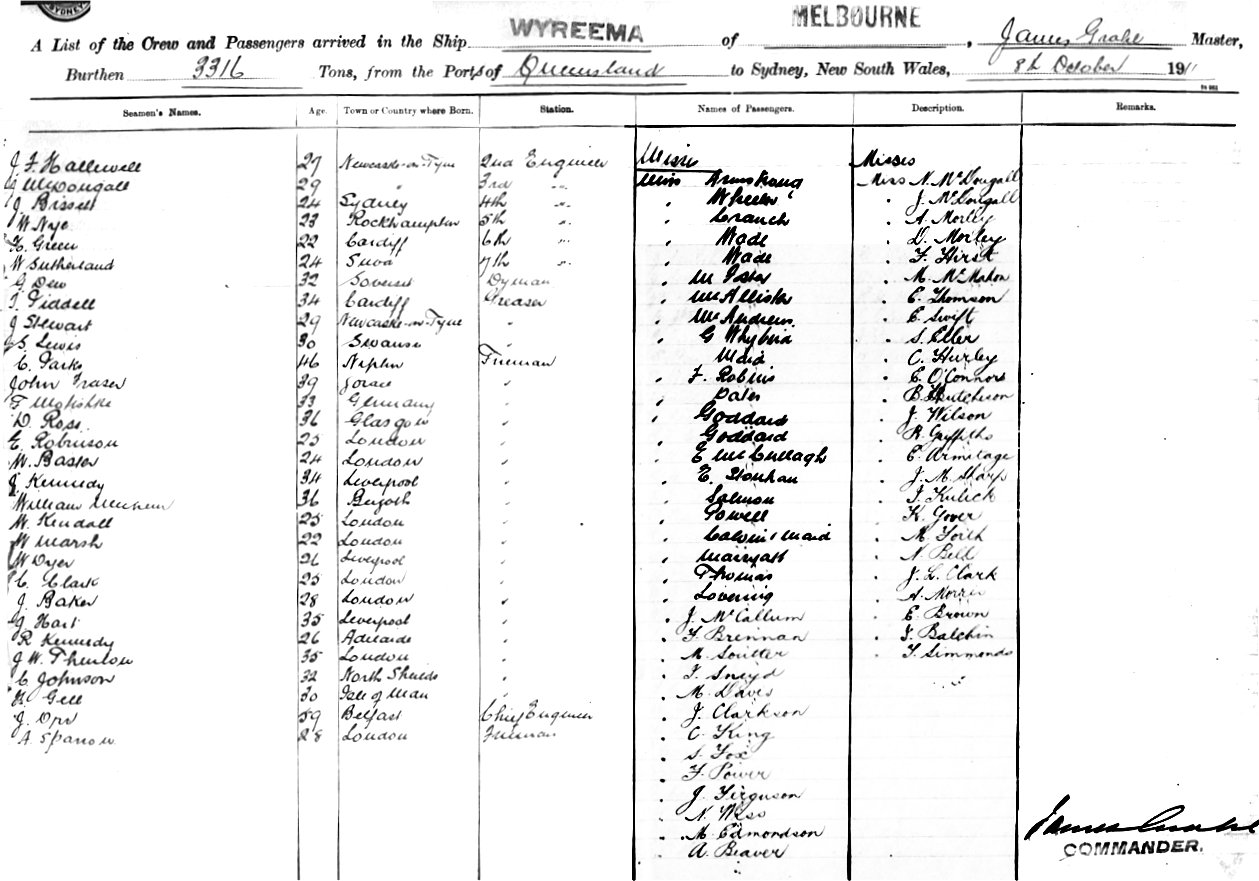 SYDNEY
A List of the Crew and Passengers arrived in the Ship WYREEMA of MELBOURNE, James Grahl Master,
Burthen 3316 Tons, from the Ports of Queensland to Sydney, New South Wales, 8th October 1911
Seamen's Names. Age. Town or Country where Born. Station. Names of Passengers. Description. Remarks.
Misses Misses
J. F. Halliwell 27 Newcastle-on-Tyne 2nd Engineer Miss Armstrong Miss N. McDougall
J McDougall 29 " 3rd " " Wheeler " J. McDougall
J Bissell 24 Sydney 4th " " Cranch " A. Morley
W Nye 23 Rockhampton 5th " " Wade " D. Morley
H. Green 22 Cardiff 6th " " Wade " F. Hirst
W Sutherland 24 Suva 7th " " M. McMahon
G. Dew 32 Dyman " McAllister " E. Thomson
T. Tiddell 34 Cardiff Greaser " McAndrews " E. Swift
J Stewart 29 Newcastle-on-Tyne " " G Whybird " S. Eller
S Lewis 30 Swansea " " Maid " C. Hurley
C. Parks 46 Fireman " F. Robins " E. O'Connor
John Fraser 39 " " Bates " B. Hutchison
F 33 Germany " " Goddard " J. Wilson
D. Ross 36 Glasgow " " Goddard " R. Griffiths
E. Robinson 25 London " " E McCullagh " E. Armitage
W. Baster 24 London " " E. " J. M. Sharp
J Kennedy 34 Liverpool " " Salmon " J. Kulick
William 36 " " Powell " K. Gover
W. Kendall 25 London " " Calvin's Maid " M.
W Marsh 22 London " " " N. Bell
W Dyer 26 Liverpool " " Thomas " J. L. Clark
C. Clark 25 London " " Lovering " A. Morris
J. Baker 28 London " " J. McCallum " E. Brown
J Hart 35 Liverpool " " F. Brennan " J. Balchin
R Kennedy 26 Adelaide " " M. Soutter " T. Simmonds
J W. 35 London " " T. Sneyd
C Johnson 32 North Shields " " M. Davis
H. Gell 30 Isle of Man " " J. Clarkson
J. Orr 59 Belfast Chief Engineer " C. King
A. Sparrow 28 London Fireman " S. Fox
" F. Power
" J. Ferguson
" N. Wess
" M. Edmondson
" A. Beaver
James Grahl
COMMANDER.